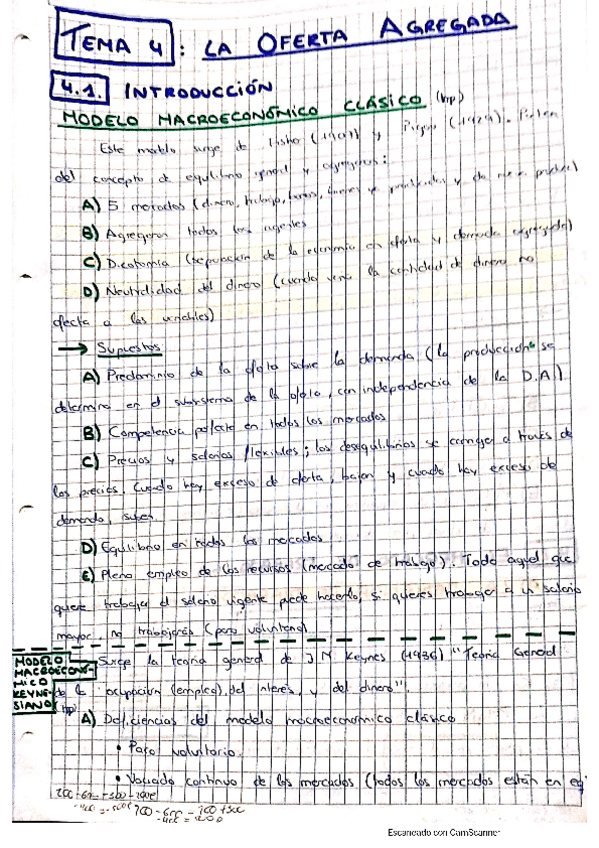 TEMA 4: LA OFERTA AGREGADA
4.1. INTRODUCCIÓN
MODELO MACROECONÓMICO CLÁSICO (hp)
Este modelo surge de Fisher (1907) y Pigou Parten
del concepto de equilibrio general y agregaron:
A) 5 mercados (dinero, trabajo, bonos, bienes
B) Agregaron todos los agentes
C) Dicotomía (separación de la economía en oferta y demanda agregada)
D) Neutralidad del dinero (cuando varía la cantidad de dinero no
afecta a las variables)
→ Supuestos
A) Predominio de la oferta sobre la demanda (la producción se
determina en el subsistema de la oferta, con independencia de la D.A.)
B) Competencia perfecta en todos los mercados
C) Precios y salarios flexibles; los desequilibrios se corrigen a través de
los precios. Cuando hay exceso de oferta, bajan y cuando hay exceso de
demanda, suben
D) Equilibrio en todos los mercados
E) Pleno empleo de los recursos (mercado de trabajo). Todo aquel que
quiere trabajar al salario vigente puede hacerlo, si quieres trabajar a un salario
mayor, no trabajarás (paro voluntario)
MODELO MACROECONÓMICO KEYNESIANO (hp)
Surge la teoría general de J M Keynes (1936) "Teoría General
de la ocupación (empleo), del interés, y del dinero".
A) Deficiencias del modelo macroeconómico clásico
• Paro voluntario.
• Vaciado continuo de los mercados (todos los mercados están en eq
Escaneado con CamScanner